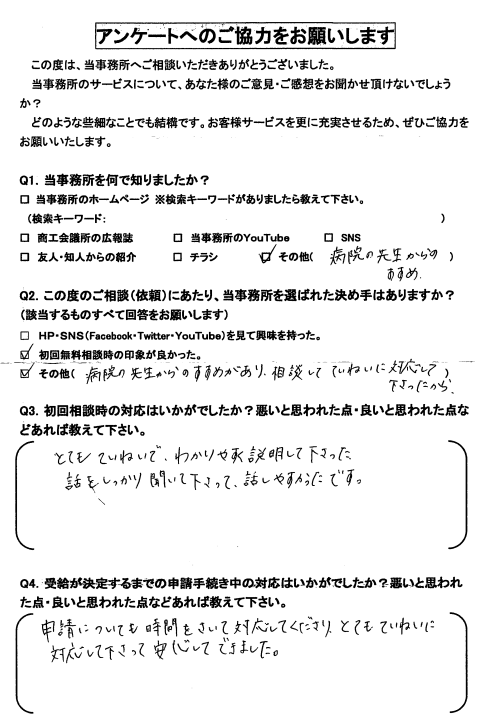 アンケートへのご協力をお願いします
この度は、当事務所へご相談いただきありがとうございました。
当事務所のサービスについて、あなた様のご意見・ご感想をお聞かせ頂けないでしょう
か？
どのような些細なことでも結構です。お客様サービスを更に充実させるため、ぜひご協力を
お願いいたします。
Q1．当事務所を何で知りましたか？
□ 当事務所のホームページ ※検索キーワードがありましたら教えて下さい。
（検索キーワード： ）
□ 商工会議所の広報誌 □ 当事務所のYouTube □ SNS
□ 友人・知人からの紹介 □ チラシ ☑ その他（ 病院の先生からの ）
すすめ．
Q2．この度のご相談（依頼）にあたり、当事務所を選ばれた決め手はありますか？
（該当するものすべて回答をお願いします）
□ HP・SNS（Facebook・Twitter・YouTube）を見て興味を持った。
☑ 初回無料相談時の印象が良かった。
☑ その他（ 病院の先生からのすすめがあり、相談して ていねいに対応して ）
下さったから．
Q3．初回相談時の対応はいかがでしたか？悪いと思われた点・良いと思われた点な
どあれば教えて下さい。
とても ていねいで、わかりやすく説明して下さった
話をしっかり聞いて下さって、話しやすかったです。
Q4．受給が決定するまでの申請手続き中の対応はいかがでしたか？悪いと思われ
た点・良いと思われた点などあれば教えて下さい。
申請についても時間をさいて対応してくださり、とてもていねいに
対応して下さって安心してできました。